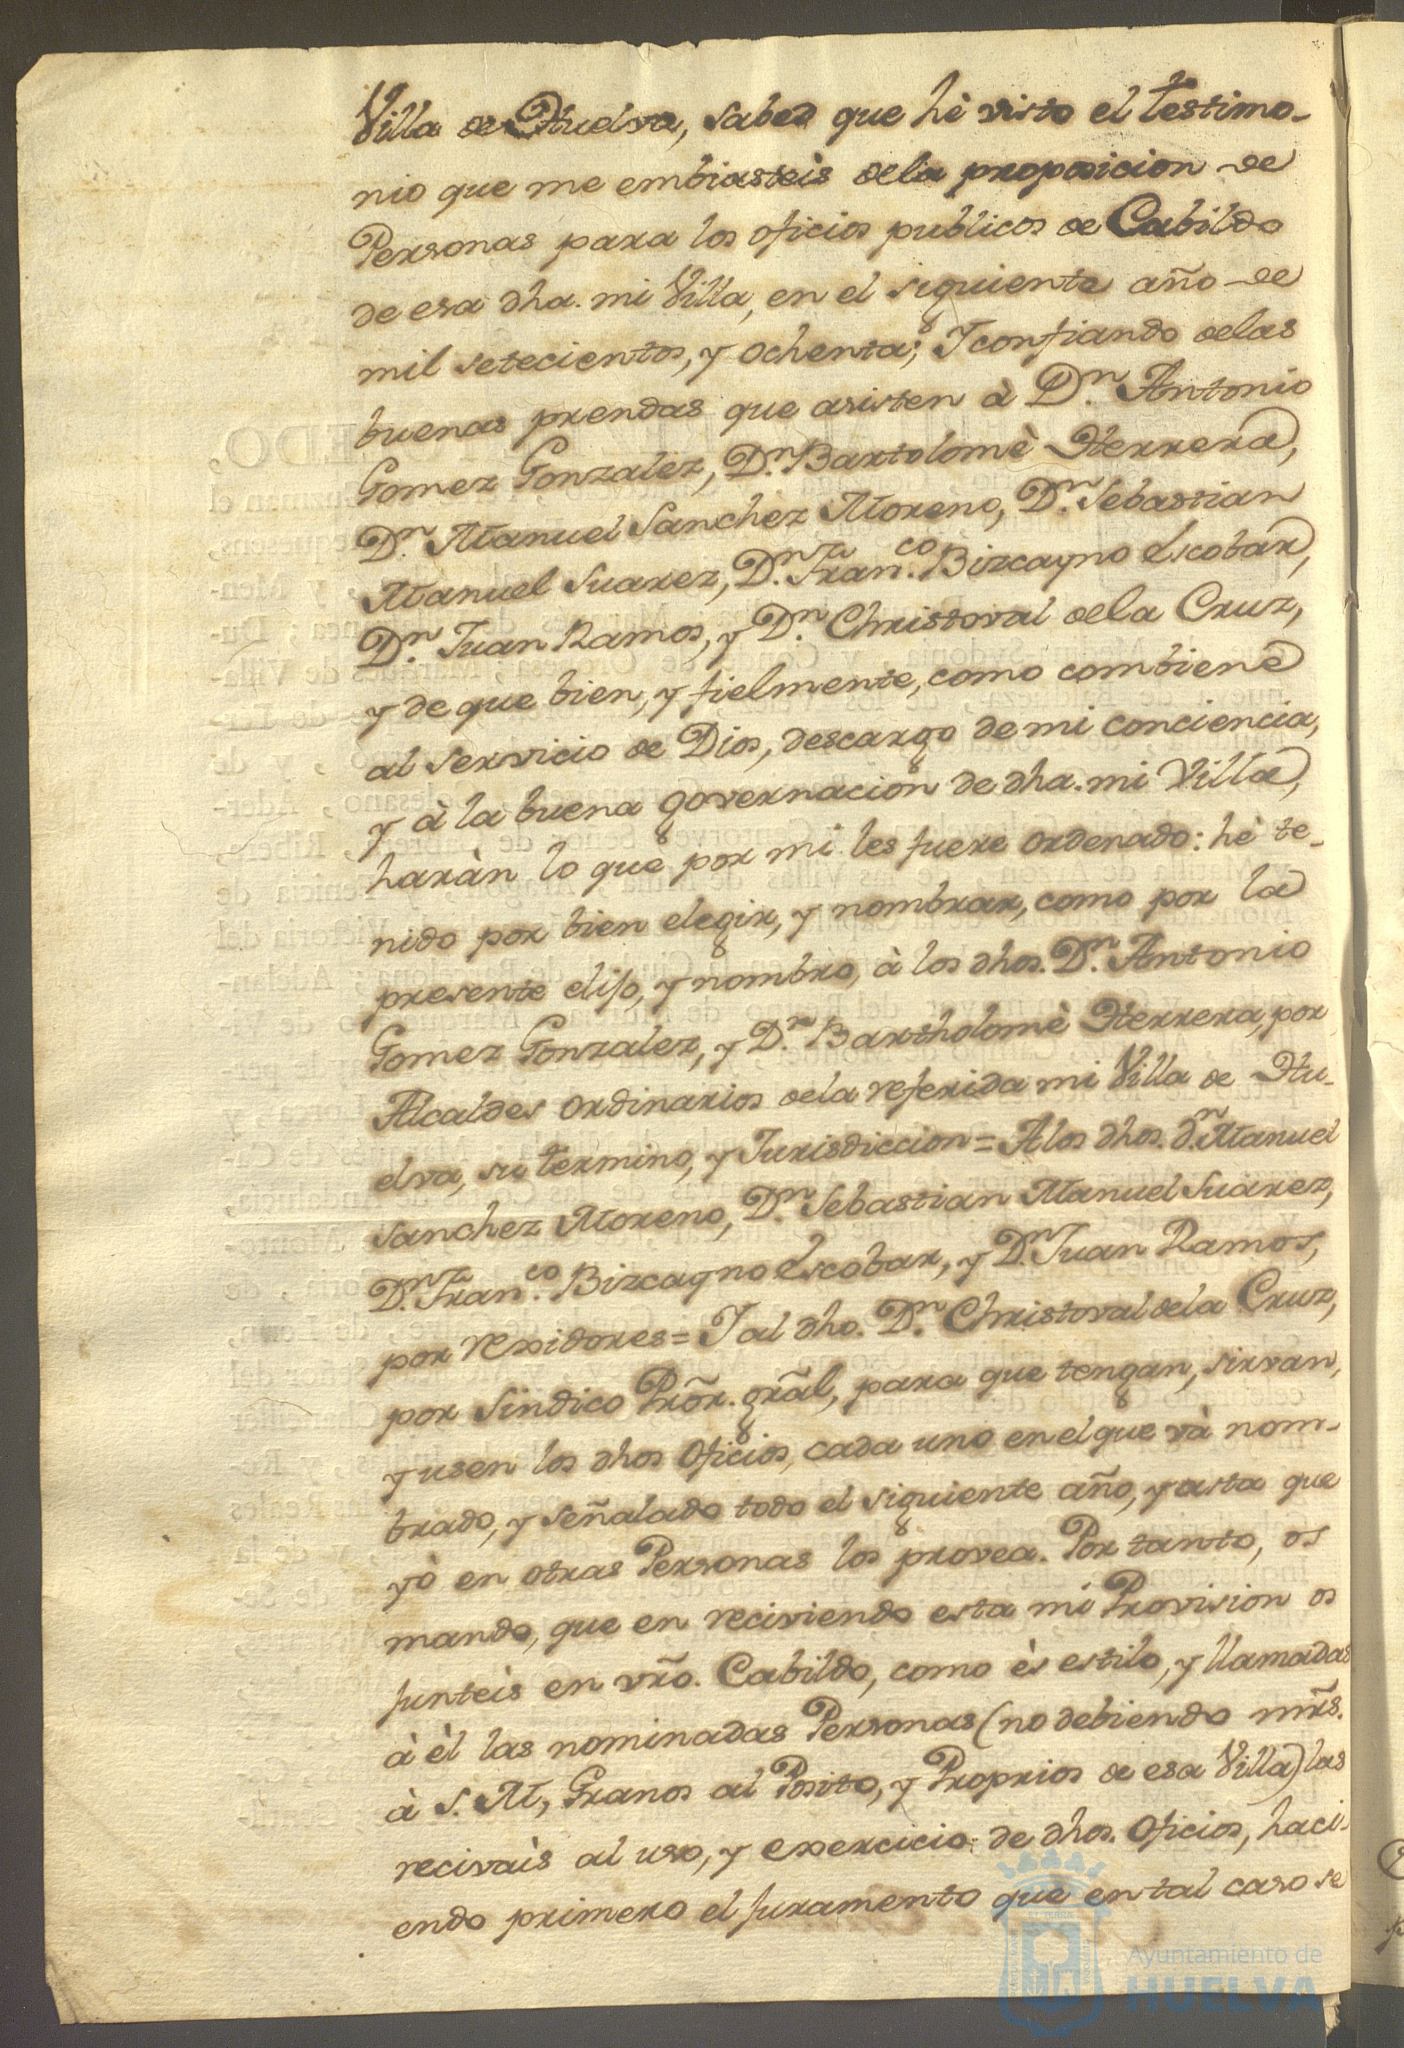 Villa de Huelva, sabed que hè visto el testimo-
nio que me embiasteìs de la proposicion de
Personas para los oficios publicos de Cabildo
de esa dha. mi Villa, en el siguiente año de
mil setecientos, y ochenta; Y confiando de las
buenas prendas que asisten à Dn. Antonio
Gomez Gonzalez, Dn. Bartolomè Herrera,
Dn. Manuel Sanchez Moreno, Dn. Sebastian
Manuel Suarez, Dn. Franco. Bizcayno Escobar,
Dn. Juan Ramos, y Dn. Christoval de la Cruz,
y de que bien, y fielmente, como combiene
al servicio de Dios, descargo de mi conciencia,
y à la buena governacion de dha. mi Villa,
haràn lo que por mi les fuere ordenado: hè te-
nido por bien elegir, y nombrar, como por la
presente elijo, y nombro, à los dhos. Dn. Antonio
Gomez Gonzalez, y Dn. Bartholomè Herrera, por
Alcaldes ordinarios de la referida mi Villa de Hu-
elva, su termino, y Jurisdiccion = A los dhos. dn. Manuel
Sanchez Moreno, Dn. Sebastian Manuel Suarez,
Dn. Franco. Bizcayno Escobar, y Dn. Juan Ramos,
por rexidores = Y al dho. Dn. Christoval de la Cruz,
por Sindico Prõr. grãl, para que tengan, sirvan,
y usen los dhos Oficios, cada uno en el que và nom-
brado, y señalado todo el siguiente año, y asta que
yò en otras Personas los provea. Por tanto, os
mando, que en reciviendo esta mi Provision os
junteìs en vrõ. Cabildo, como ès estilo, y llamadas
à èl las nominadas Personas (no debiendo mrs̃.
à S. M, Granos al Posito, y Proprios de esa Villa) las
recivaìs al uso, y exercicio de dhos. Oficios, haci-
endo primero el juramento que en tal caso se
Ayuntamiento de
HUELVA